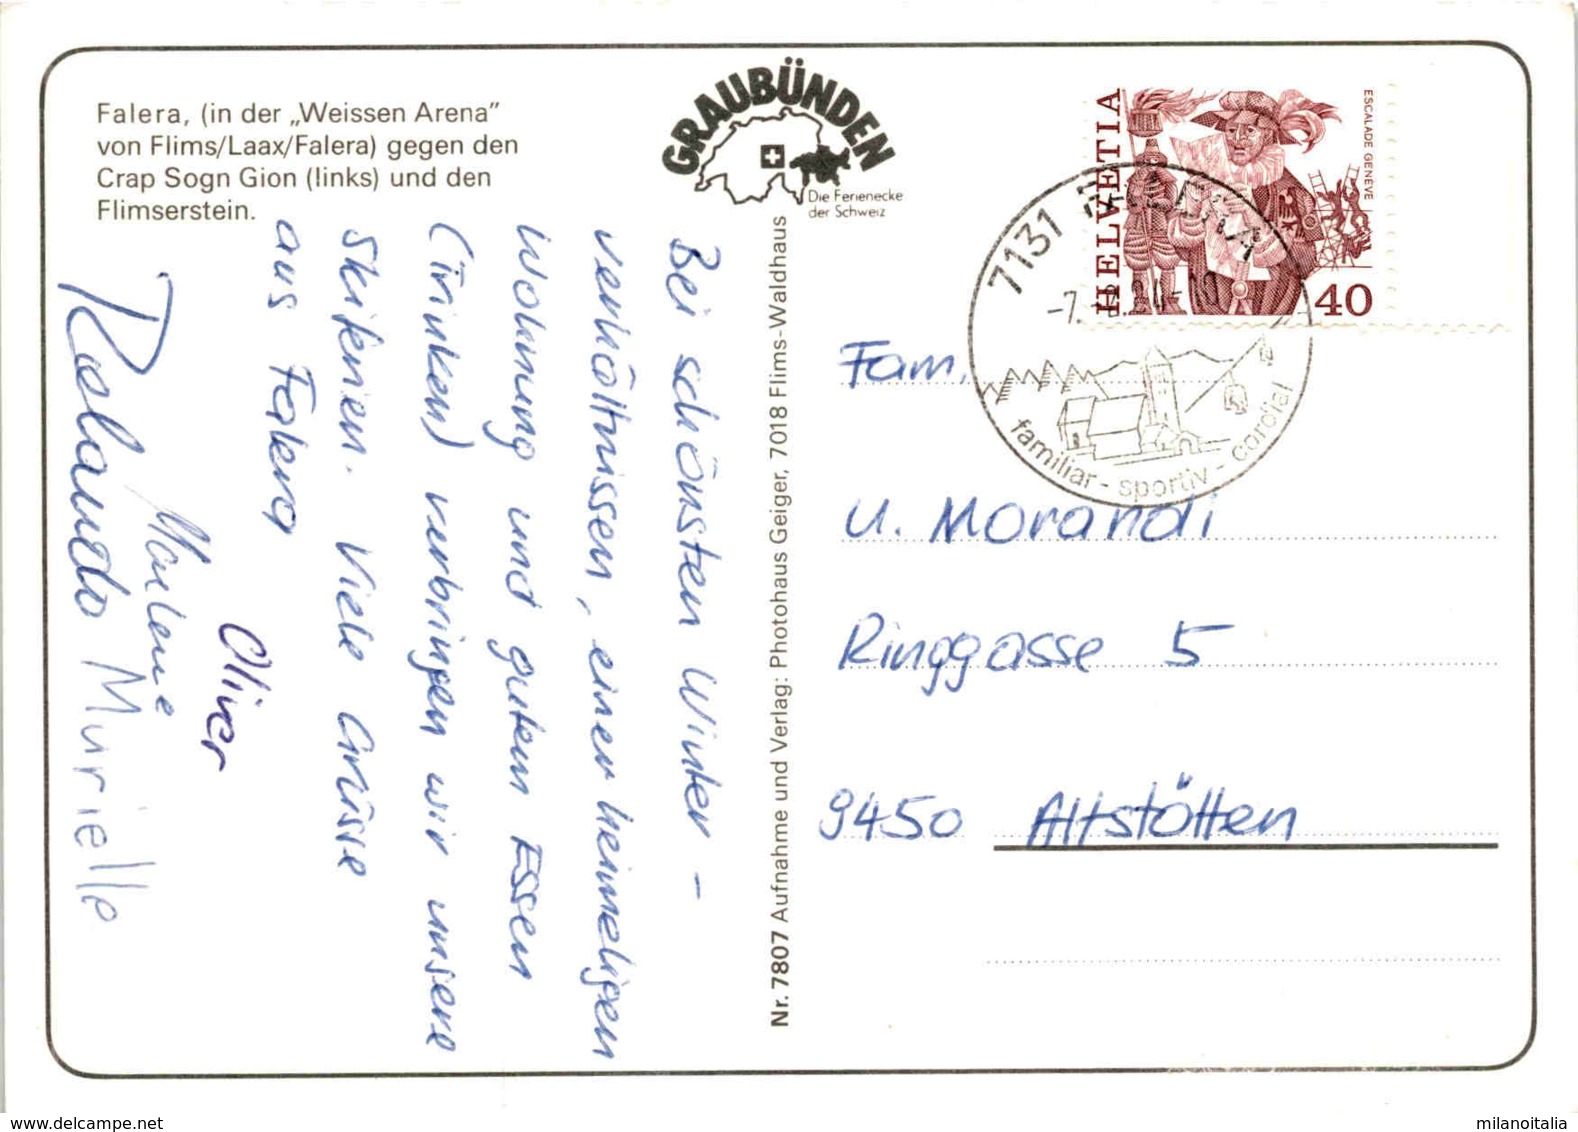 Falera, (in der „Weissen Arena”
von Flims/Laax/Falera) gegen den
Crap Sogn Gion (links) und den
Flimserstein.
GRAUBÜNDEN
Die Ferienecke
der Schweiz
HELVETIA
ESCALADE GENEVE
40
7131 FALERA
familiar - sportiv - cordial
Bei schönsten Winter-
verhältnissen, einer heimeligen
Wohnung und gutem Essen
(Trinken) verbringen wir unsere
Skiferien. Viele Grüsse
aus Falera
Oliver
Marlene
Rolando Murielle
Nr. 7807 Aufnahme und Verlag: Photohaus Geiger, 7018 Flims-Waldhaus
Fam.
U. Morandi
Ringgasse 5
9450 Altstätten
www.delcampe.net
milanoitalia